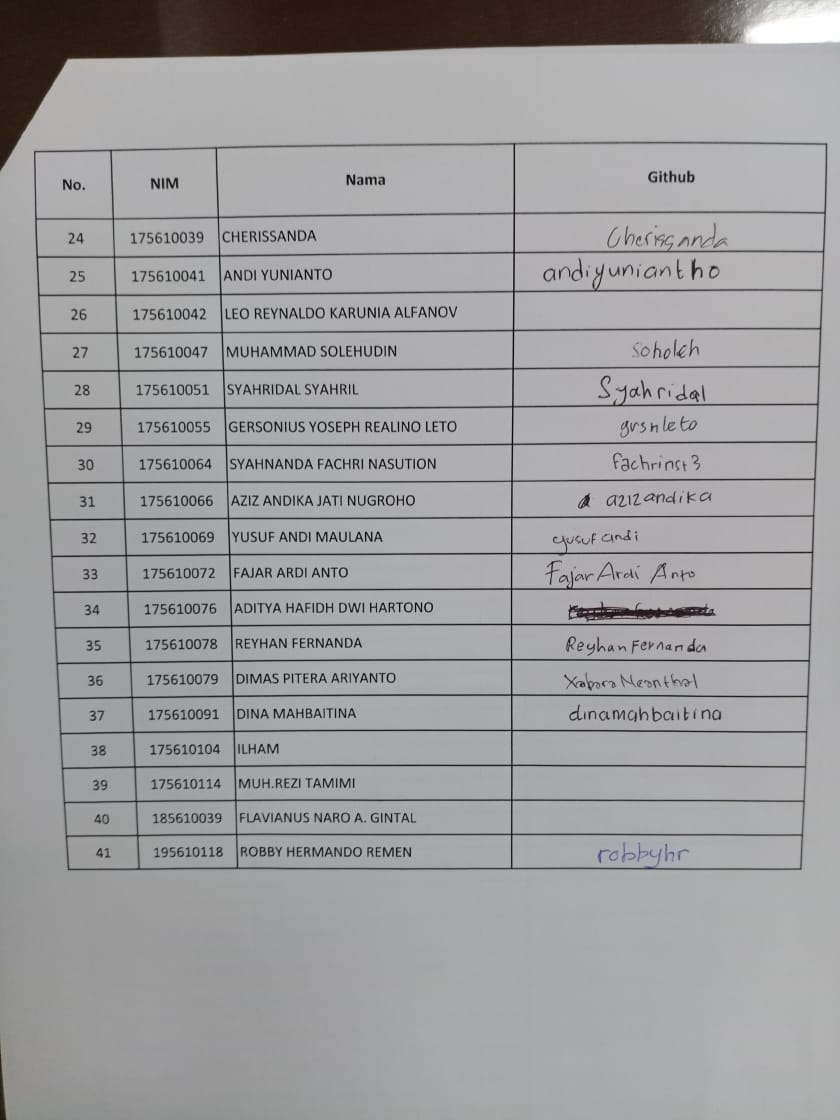 No. NIM Nama Github
24 175610039 CHERISSANDA Cherissanda
25 175610041 ANDI YUNIANTO andiyuniantho
26 175610042 LEO REYNALDO KARUNIA ALFANOV
27 175610047 MUHAMMAD SOLEHUDIN soholeh
28 175610051 SYAHRIDAL SYAHRIL Syahridal
29 175610055 GERSONIUS YOSEPH REALINO LETO grsnleto
30 175610064 SYAHNANDA FACHRI NASUTION fachrinst3
31 175610066 AZIZ ANDIKA JATI NUGROHO azizandika
32 175610069 YUSUF ANDI MAULANA yusufandi
33 175610072 FAJAR ARDI ANTO FajarArdi Anto
34 175610076 ADITYA HAFIDH DWI HARTONO
35 175610078 REYHAN FERNANDA ReyhanFernanda
36 175610079 DIMAS PITERA ARIYANTO
37 175610091 DINA MAHBAITINA dinamahbaitina
38 175610104 ILHAM
39 175610114 MUH.REZI TAMIMI
40 185610039 FLAVIANUS NARO A. GINTAL
41 195610118 ROBBY HERMANDO REMEN robbyhr